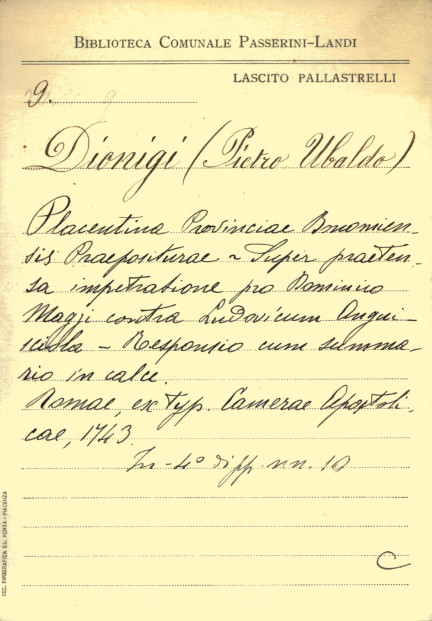 BIBLIOTECA COMUNALE PASSERINI-LANDI
LASCITO PALLASTRELLI
9.
Dionigi (Pietro Ubaldo)
Placentina Provinciae Bnomien-
sis Praepositurae ~ Super praeten-
sa impetratione pro Dominico
Maggi contra Ludovicum Angui-
sciola - Responsio cum summa-
rio in calce.
Romae, ex typ. Camerae Apostoli-
cae, 1743.
In-4° di pp. nn. 10
C